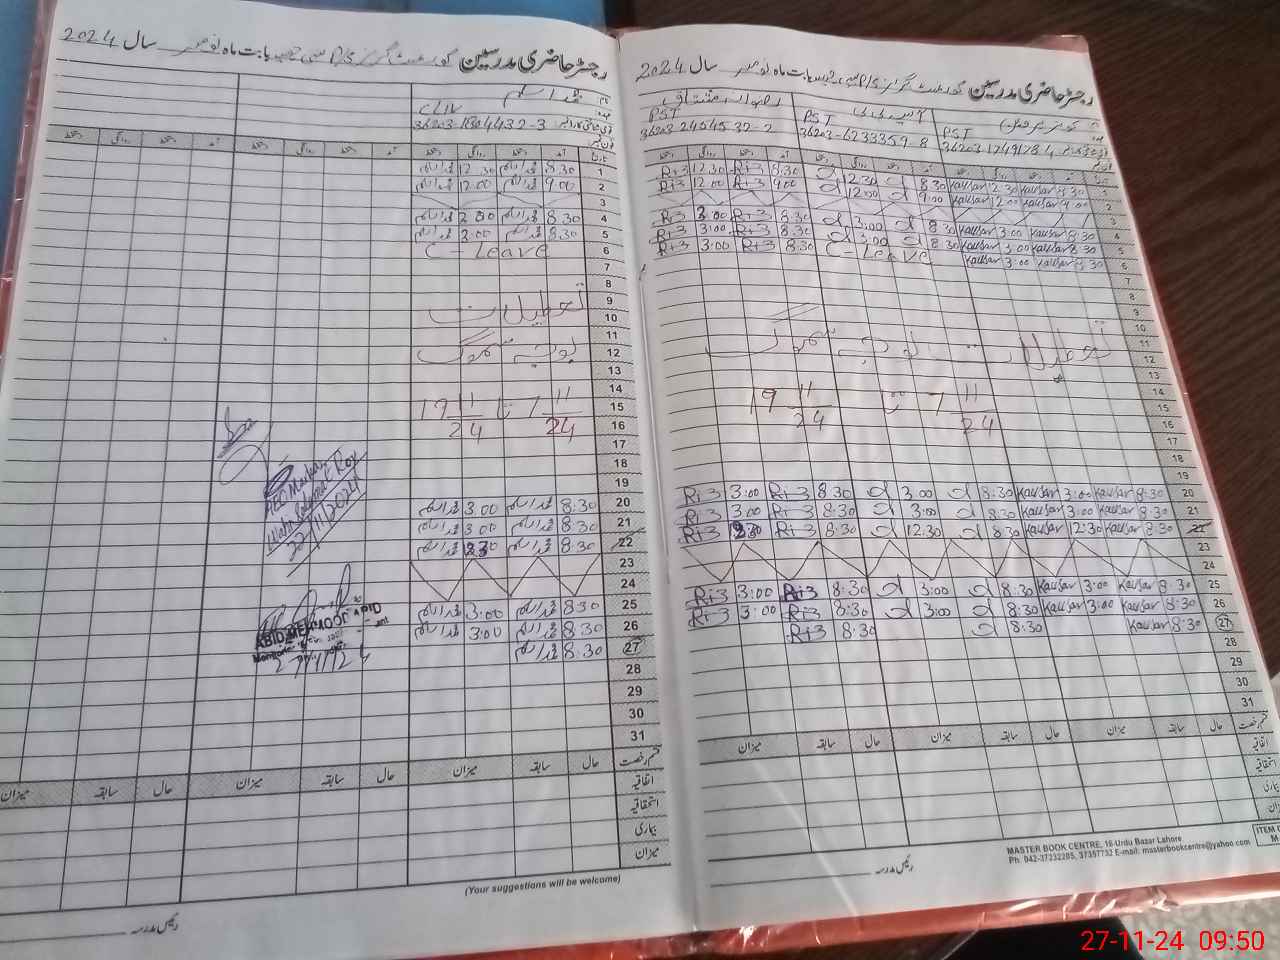 رجسٹر حاضری مدرسین گورنمنٹ گرلز P/S بابت ماہ نومبر سال 2024
PST
36203-1249178-4
PST
36203-6233359-8
رضوانہ مشتاق
PST
36203-2454532-2
تاریخ آمد دستخط روانگی دستخط آمد دستخط روانگی دستخط آمد دستخط روانگی دستخط
1 8.30 Kausar 12.30 Kausar 8.30 12.30 8.30 Ri3 12.30 Ri3
2 9.00 Kausar 12.00 Kausar 9.00 12.00 9.00 Ri3 12.00 Ri3
3
4 8.30 Kausar 3.00 Kausar 8.30 3.00 8.30 Ri3 3:00 Ri3
5 8.30 Kausar 3.00 Kausar 8.30 3.00 8.30 Ri3 3:00 Ri3
6 8.30 Kausar 3.00 Kausar C-Leave 8:30 Ri3 3:00 Ri3
7
8
9
10
11
تعطیلات بوجہ سموگ
12
13
14
7 11/24 تا 19 11/24
15
16
17
18
19
20 8.30 Kausar 3:00 Kausar 8.30 3.00 8.30 Ri3 3:00 Ri3
21 8.30 Kausar 3:00 Kausar 8.30 3:00 8.30 Ri3 3:00 Ri3
22 8.30 Kausar 12:30 Kausar 8.30 12.30 8:30 Ri3 Ri3
23
24
25 8.30 Kausar 3:00 Kausar 8.30 3:00 8.30 Ri3 3:00 Ri3
26 8:30 Kausar 3:00 Kausar 8:30 3:00 8:30 Ri3 3:00 Ri3
27 8:30 Kausar 8:30 8:30 Ri3
28
29
30
31
قسم رخصت حال سابقہ میزان حال سابقہ میزان حال سابقہ میزان
اتفاقیہ
استحقاقیہ
بیماری
میزان
رئیس مدرسہ
MASTER BOOK CENTRE, 16-Urdu Bazar Lahore
Ph: 042-37232205, 37357732 E-mail: masterbookcentre@yahoo.com
رجسٹر حاضری مدرسین گورنمنٹ گرلز P/S بابت ماہ نومبر سال 2024
نام محمد اسلم
C/IV
36203-1804432-3
تاریخ آمد دستخط روانگی دستخط آمد دستخط روانگی دستخط آمد دستخط روانگی دستخط
1 8.30 محمد اسلم 12.30 محمد اسلم
2 9.00 محمد اسلم 12.00 محمد اسلم
3
4 8.30 محمد اسلم محمد اسلم
5 8.30 محمد اسلم 3:00 محمد اسلم
6 C-Leave
7
8
9 تعطیلات
10
11
12 بوجہ سموگ
13
14
15 7 11/24 تا 19 11/24
16
17
18
19
20 8:30 محمد اسلم 3:00 محمد اسلم
21 8:30 محمد اسلم 3:00 محمد اسلم
22 8:30 محمد اسلم محمد اسلم
23
24
25 8:30 محمد اسلم 3:00 محمد اسلم
26 8:30 محمد اسلم 3:00 محمد اسلم
27 8:30 محمد اسلم
28
29
30
31
AEO Markaz
22/11/2024
27/11/24
قسم رخصت حال سابقہ میزان حال سابقہ میزان حال سابقہ میزان
اتفاقیہ
استحقاقیہ
بیماری
میزان
(Your suggestions will be welcome)
رئیس مدرسہ
27-11-24 09:50